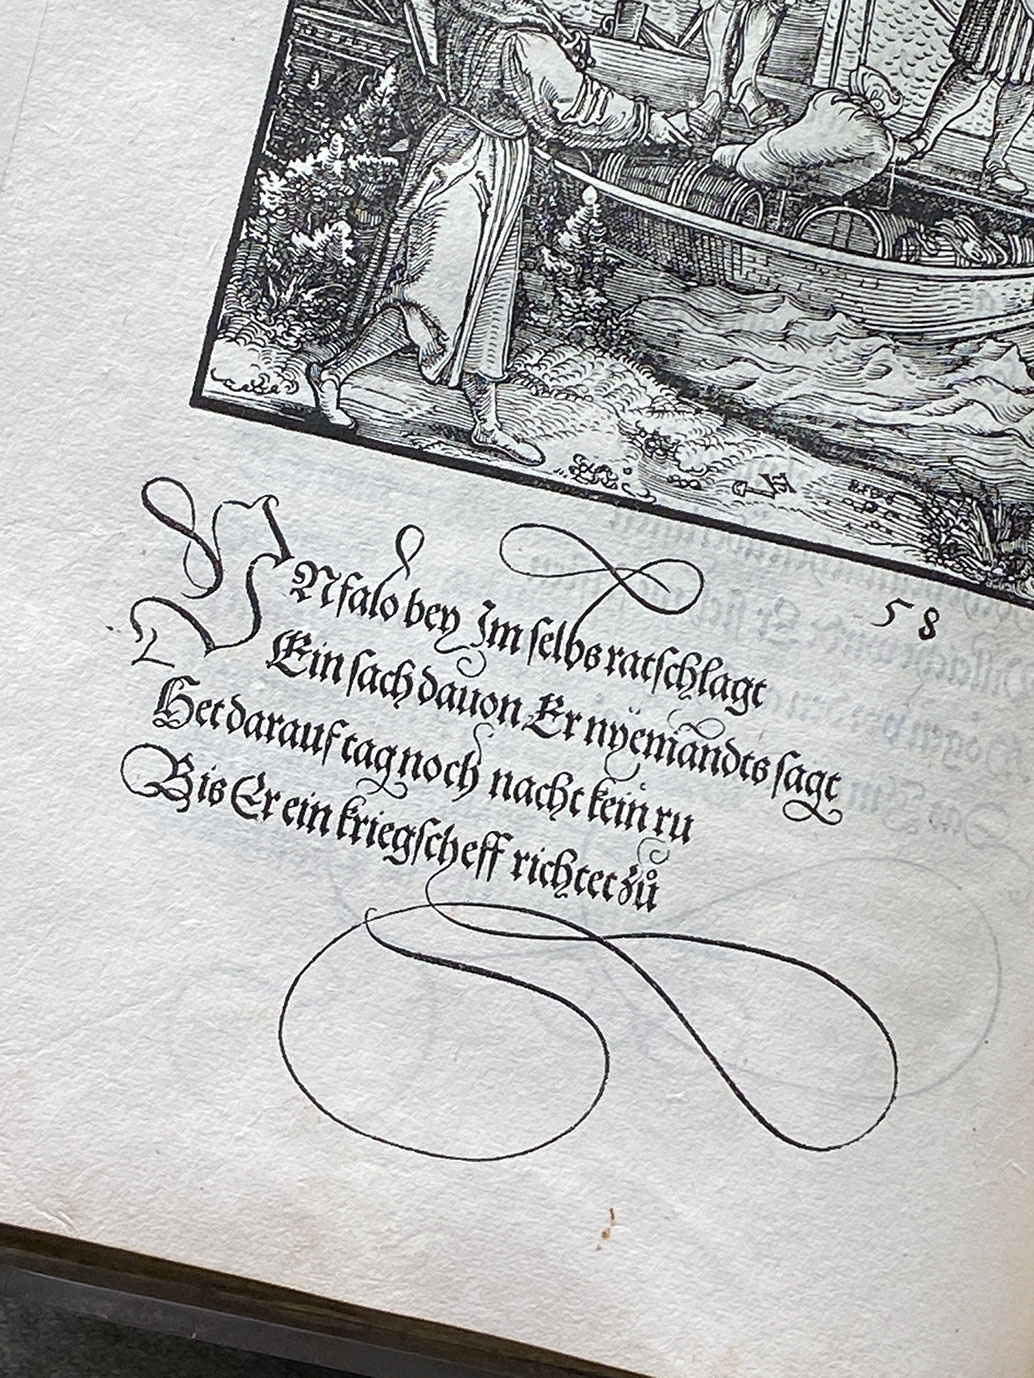 58
VNfalo bey Im selbs ratschlagt
Ein sach dauon Er nÿemandts sagt
Het darauf tag noch nacht kein ru
Bis Er ein kriegscheff richtet zů